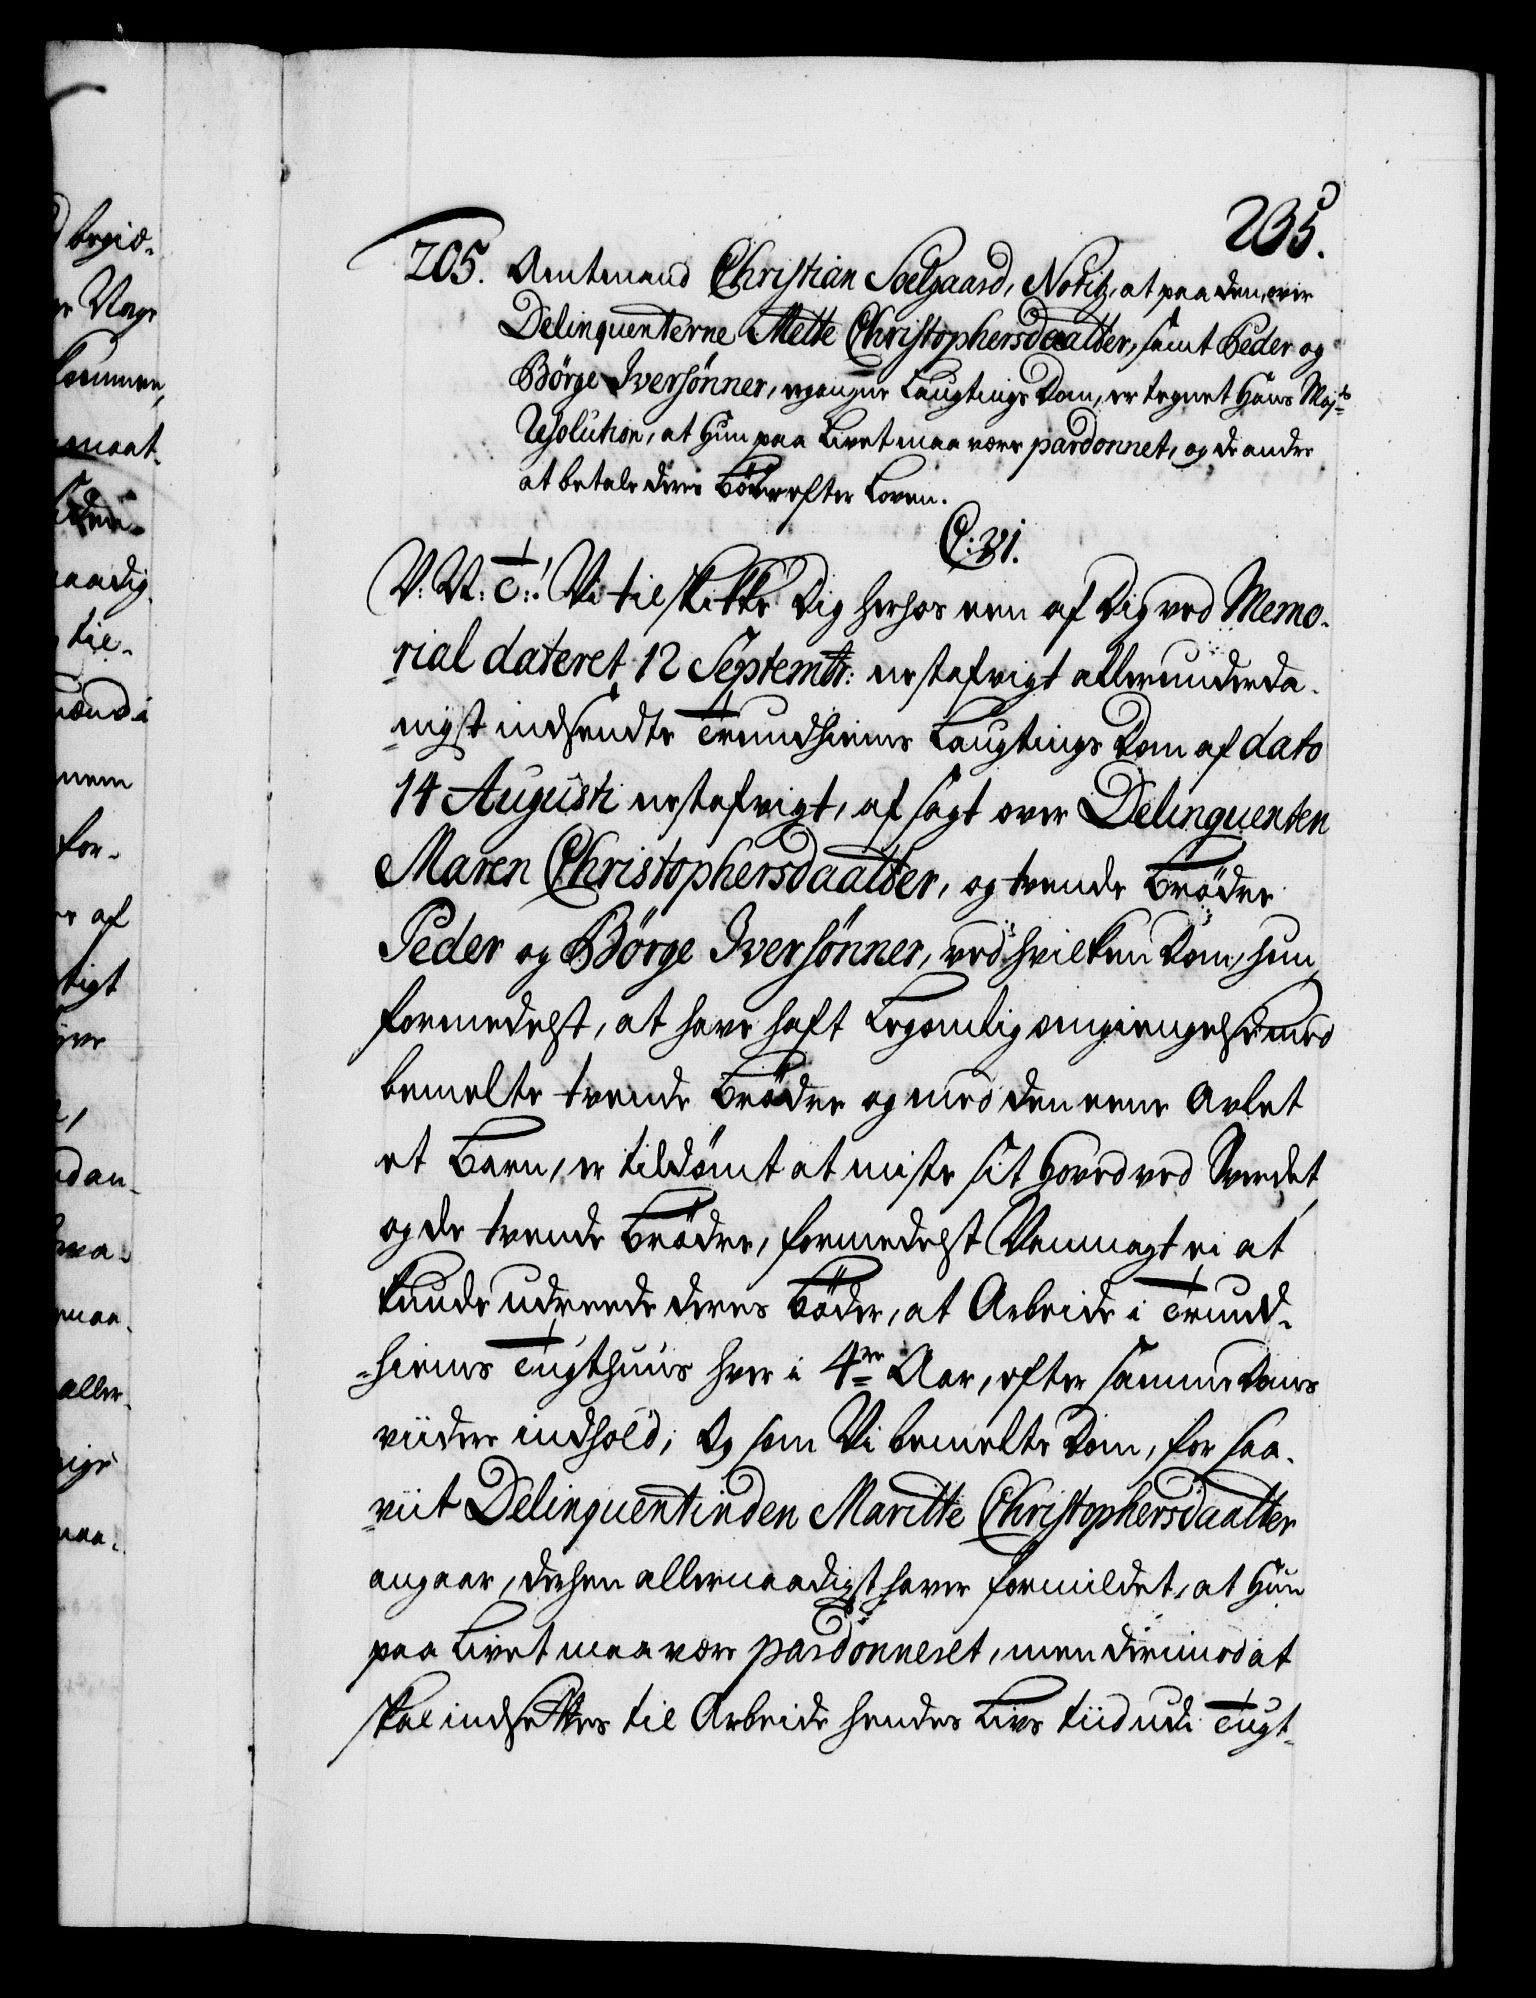 235.
205. Amtmand Christian Soelgaard, Notitz, at paa den, over
Delinquenterne Mette Christophersdaatter, samt Peder og
Börge Iversönner, ergangne Laugtings Dom, er tegnet Hans Mayts
Resolution, at Hun paa Livet maa være pardonnet, og de andre
at betale deres Böder efter Loven.
C: VI.
V: Vt: T:! Vi tilskikke Dig herhos een af Dig ved Memo-
rial dateret 12 Septembr: nestafvigt allerunderda-
nigst indsendte Trundhiems Laugtings Dom af dato
14 Augusti nestafvigt, afsagt over Delinquenten
Maren Christophersdaatter, og tvende Brödre
Peder og Börge Iversönner, ved hvilken Dom, hun
formedelst, at have haft Legomlig omgiengelse med
bemelte tvende Brödre og med den eene Avlet
et Barn, er tildömt at miste sit Hoved ved Sverdet,
og de tvende Brödre, formedelst Vanmagt ei at
kunde udreede deres Böder, at Arbeide i Trund-
hiems Tugthuus hver i 4re Aar, efter samme Doms
viidere indhold; Og som Vi bemelte Dom, for saa-
viit Delinquentinden Maritte Christophersdaatter
angaar, derhen allernaadigst haver formildet, at Hun
paa Livet maa være pardonneret, men derimod at
skal indsettes til Arbeide hendes Livs tiid udi Tugt-